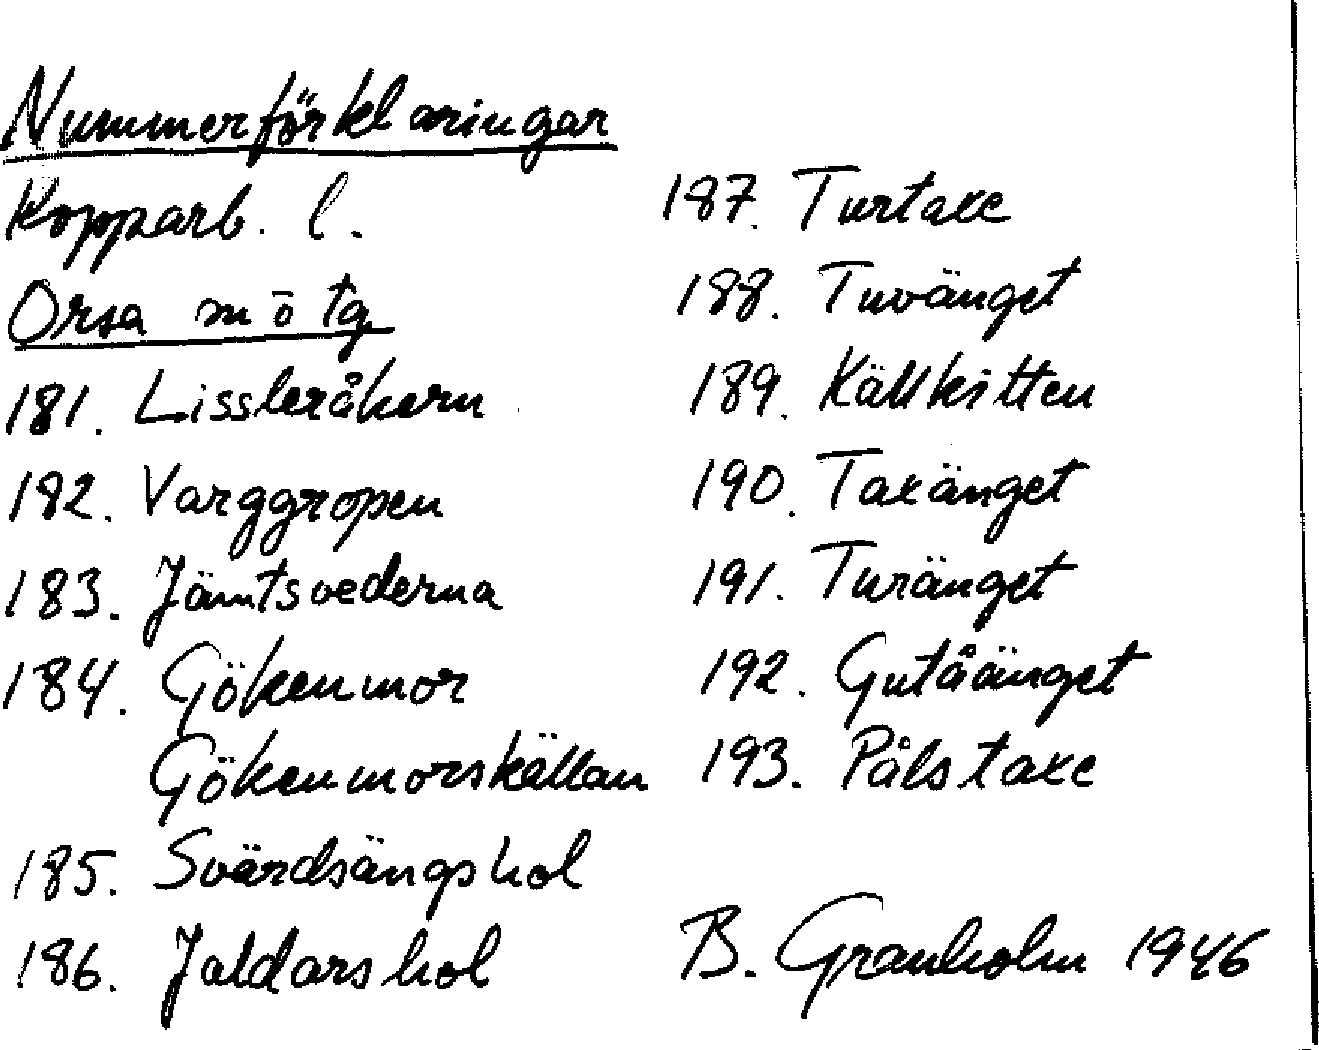 Nummerförklaringar
Kopparb. l.
Orsa sn ō tg
181. Lissleråkern
182. Varggropen
183. Jämtsvederna
184. Gökenmor
Gökenmorskällan
185. Svärdsängshol
186. Jaldarshol
187. Turtaxe
188. Tuvänget
189. Källkitten
190. Taxänget
191. Turänget
192. Gutåänget
193. Pålstaxe
B. Granholm 1946